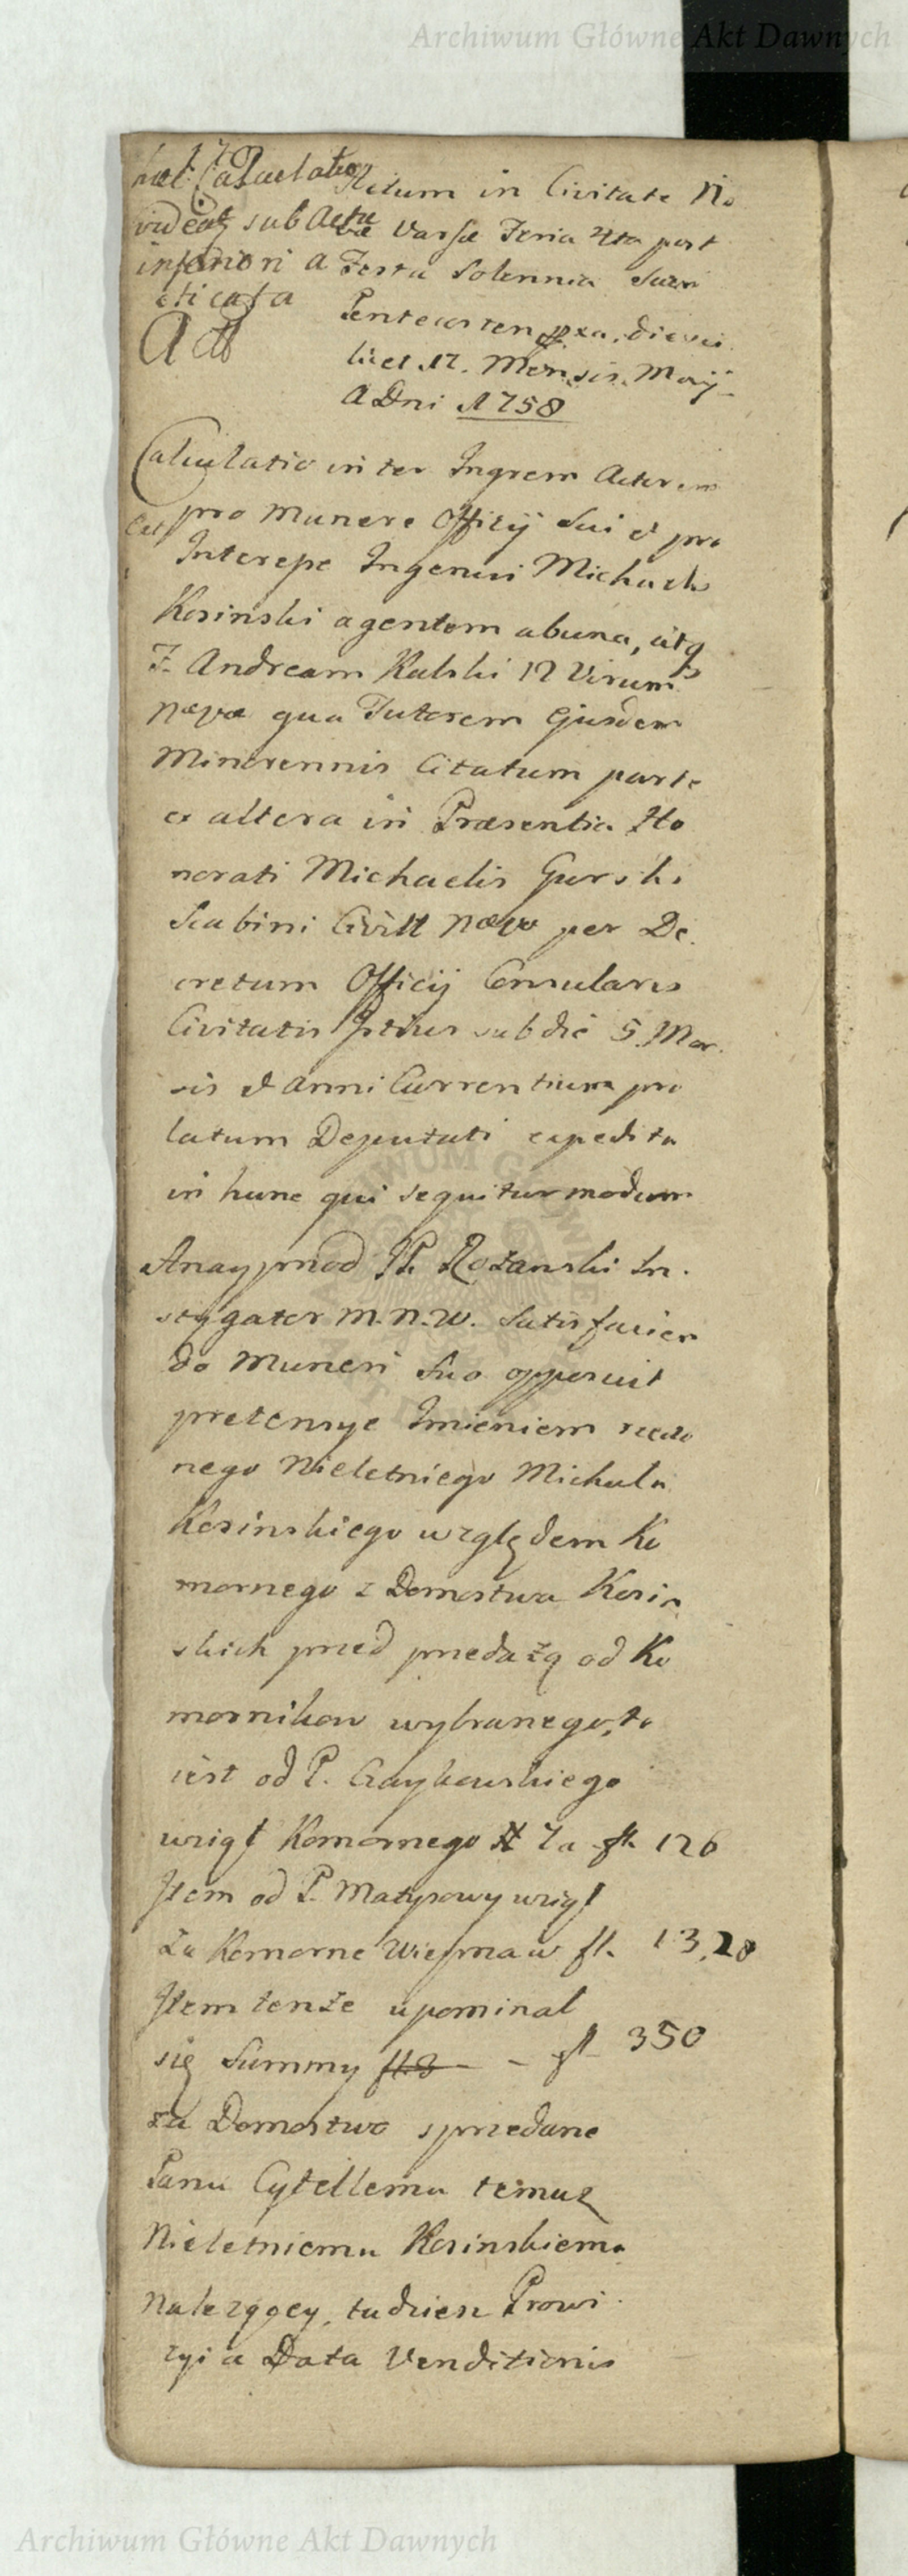 Archiwum Główne Akt Dawnych
hæc Calculatio
videat sub Actu
inferiori a
eticata
Actum in Civitate No
væ Varsæ Feria 4ta post
Festa Solennia Sacri
Pentecosten pxa, die sci
licet 17. Mensis Maij
A Dni 1758
Calculatio inter Ingrem Actorem
pro munere Officij Sui et pro
Interesse Ingenui Michaelis
Kosinski agentem abuna, atq
F. Andream Kulski 12 Virum
Nævæ qua Tutorem Ejusdem
Minorennis Citatum parte
ex altera in Præsentia Ho
norati Michaelis Gurski
Scabini Civitt Næv per De
cretum Officij Consularis
Civitatis Istius sub die 5. Men
sis et Anni Currentium pro
latum Deputati expedita
in hunc qui sequitur modum
Anayprzod JP. Rożanski In
stygator M. N. W. Satisfacien
do Muneri Suo opposuit
pretensye Imieniem rzeczo
nego Nieletniego Michała
Kosinskiego względem Ko
mornego z Domostwa Kosin
skich przed przedażą od Ko
mornikow wybranego, to
iest od P. Czaykowskiego
wziął Komornego Za fl. 126
Item od P. Matysowy wziął
Za Komorne fl. 13,28
Item tenże upominał
się Summy - fl 350
za Domostwo sprzedane
Panu Cytellemu temuż
Nieletniemu Kosinskiemu
Należący, tudziesz Prowi
zyi a Data Venditionis
ARCHIWUM GŁÓWNE AKT DAWNYCH
Archiwum Główne Akt Dawnych